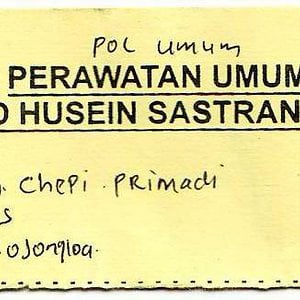 POL umum
PERAWATAN UMUM
O HUSEIN SASTRAN
Chepi Primadi
S